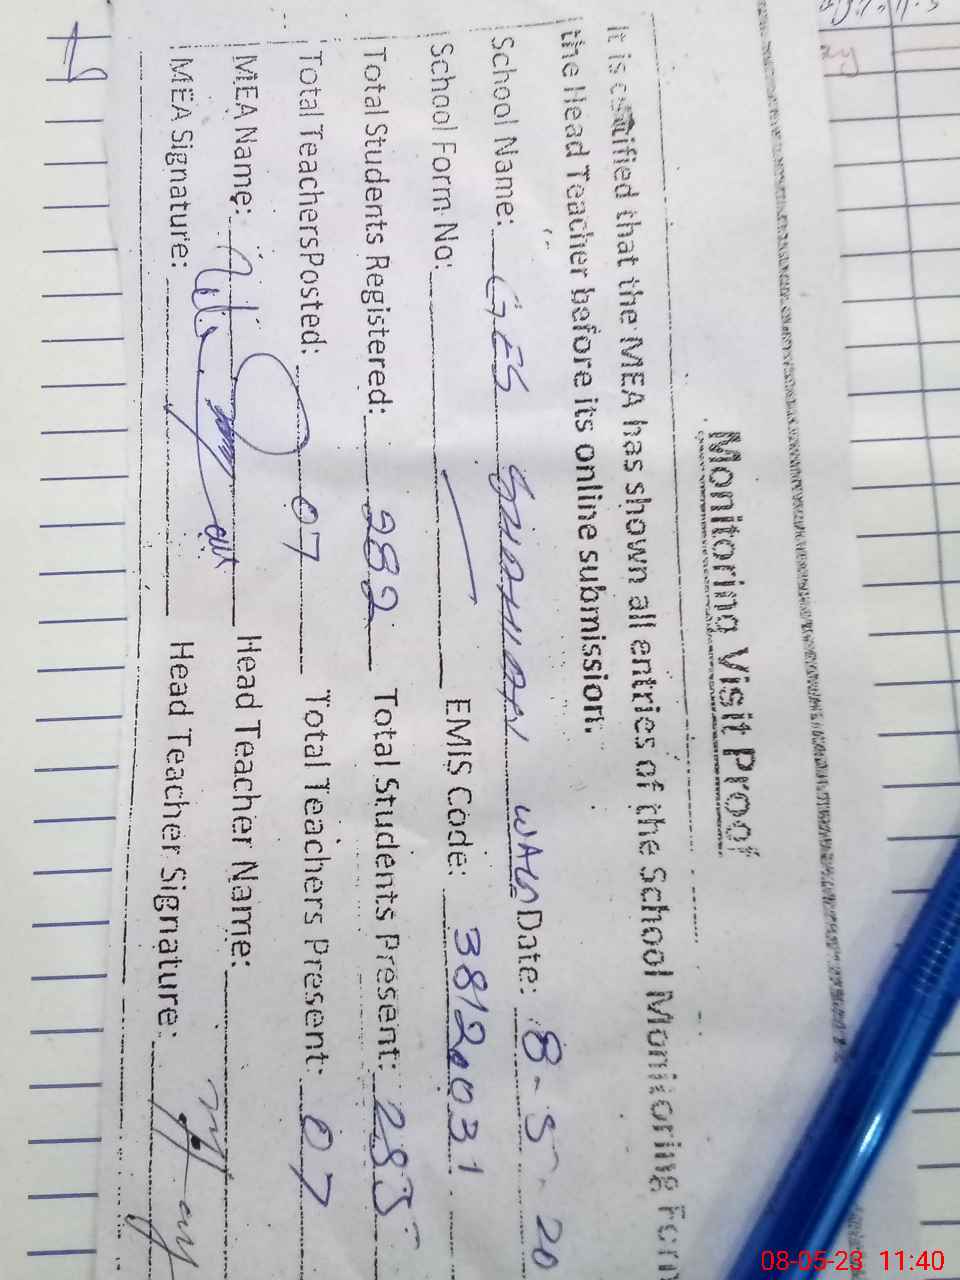 Monitoring Visit Proof
It is certified that the MEA has shown all entries of the School Monitoring Form
the Head Teacher before its online submission.
School Name: GES Date: 8-5-20
School Form No: EMIS Code: 38120031
Total Students Registered: 289 Total Students Present: 285
Total Teachers Posted: 07 Total Teachers Present: 07
MEA Name: Head Teacher Name:
MEA Signature: Head Teacher Signature:
08-05-23 11:40